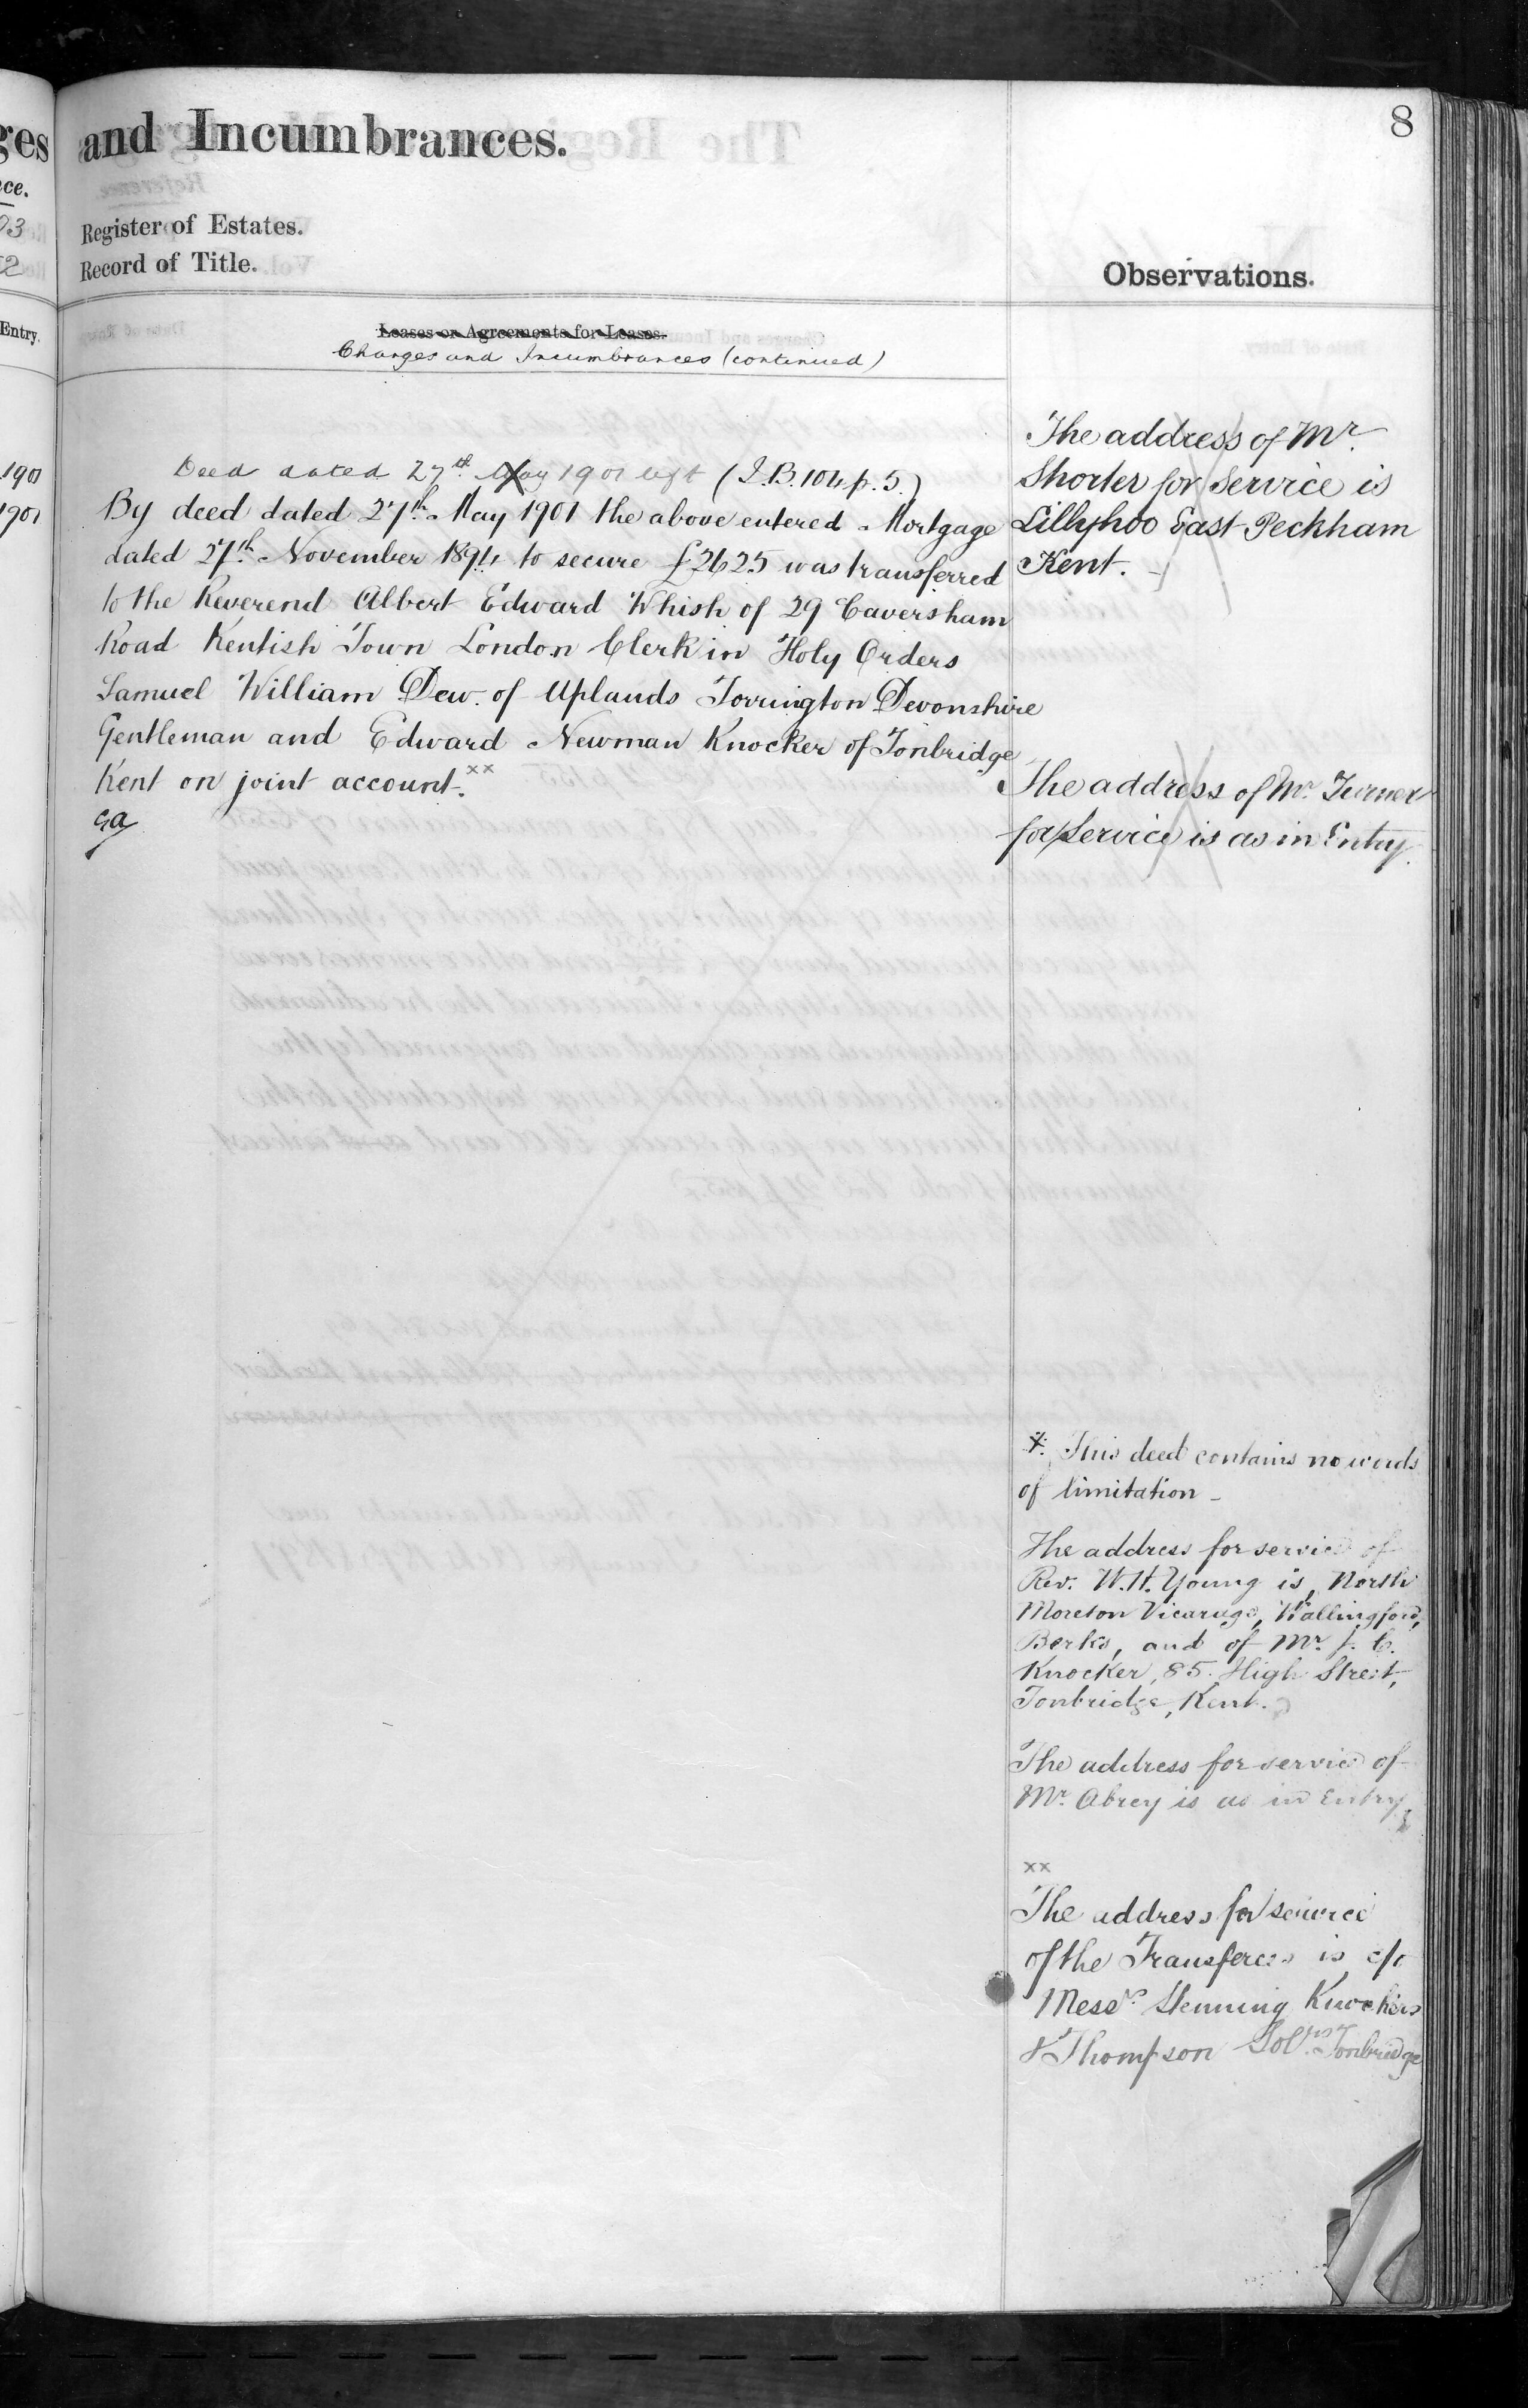 ges
ce.
93
2
Entry.
1901
1901
and Incumbrances.
8
Register of Estates.
Record of Title.
Observations.
Leases or Agreements for Leases.
Charges and Incumbrances (continued)
Deed dated 27th May 1901 left (I.B. 104 p. 5.)
By deed dated 27th May 1901 the above entered Mortgage
dated 27th November 1894 to secure £2625 was transferred
to the Reverend Albert Edward Whish of 29 Caversham
Road Kentish Town London Clerk in Holy Orders
Samuel William Dew of Uplands Torrington Devonshire
Gentleman and Edward Newman Knocker of Tonbridge
Kent on joint account. xx
The address of Mr
Shorter for Service is
Lillyhoo East Peckham
Kent.
The address of Mr. Turner
for Service is as in Entry.
This deed contains no words
of limitation -
The address for service of
Rev. W. H. Young is, North
Moreton Vicarage, Wallingford,
Berks, and of Mr. J. C.
Knocker, 85. High Street,
Tonbridge, Kent.
The address for service of
Mr. Abrey is as in Entry
xx
The address for service
of the Transferees is c/o
Messrs Stenning Knockers
& Thompson Solrs. Tonbridge